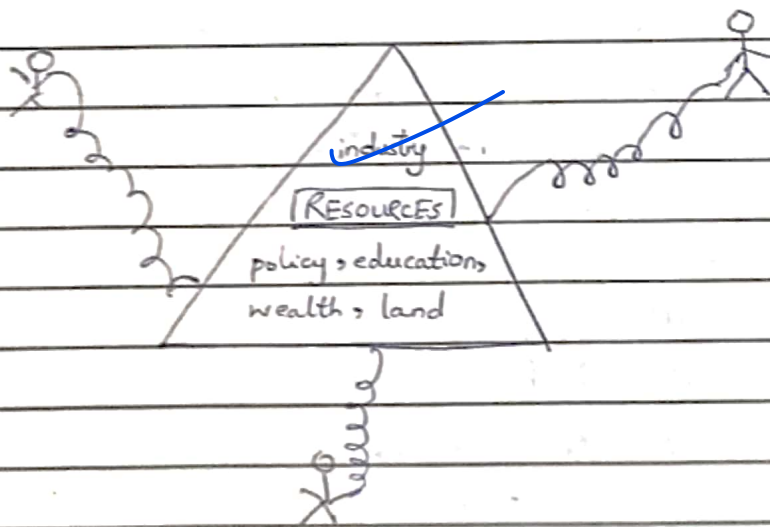 industry
RESOURCES
policy, education,
wealth, land